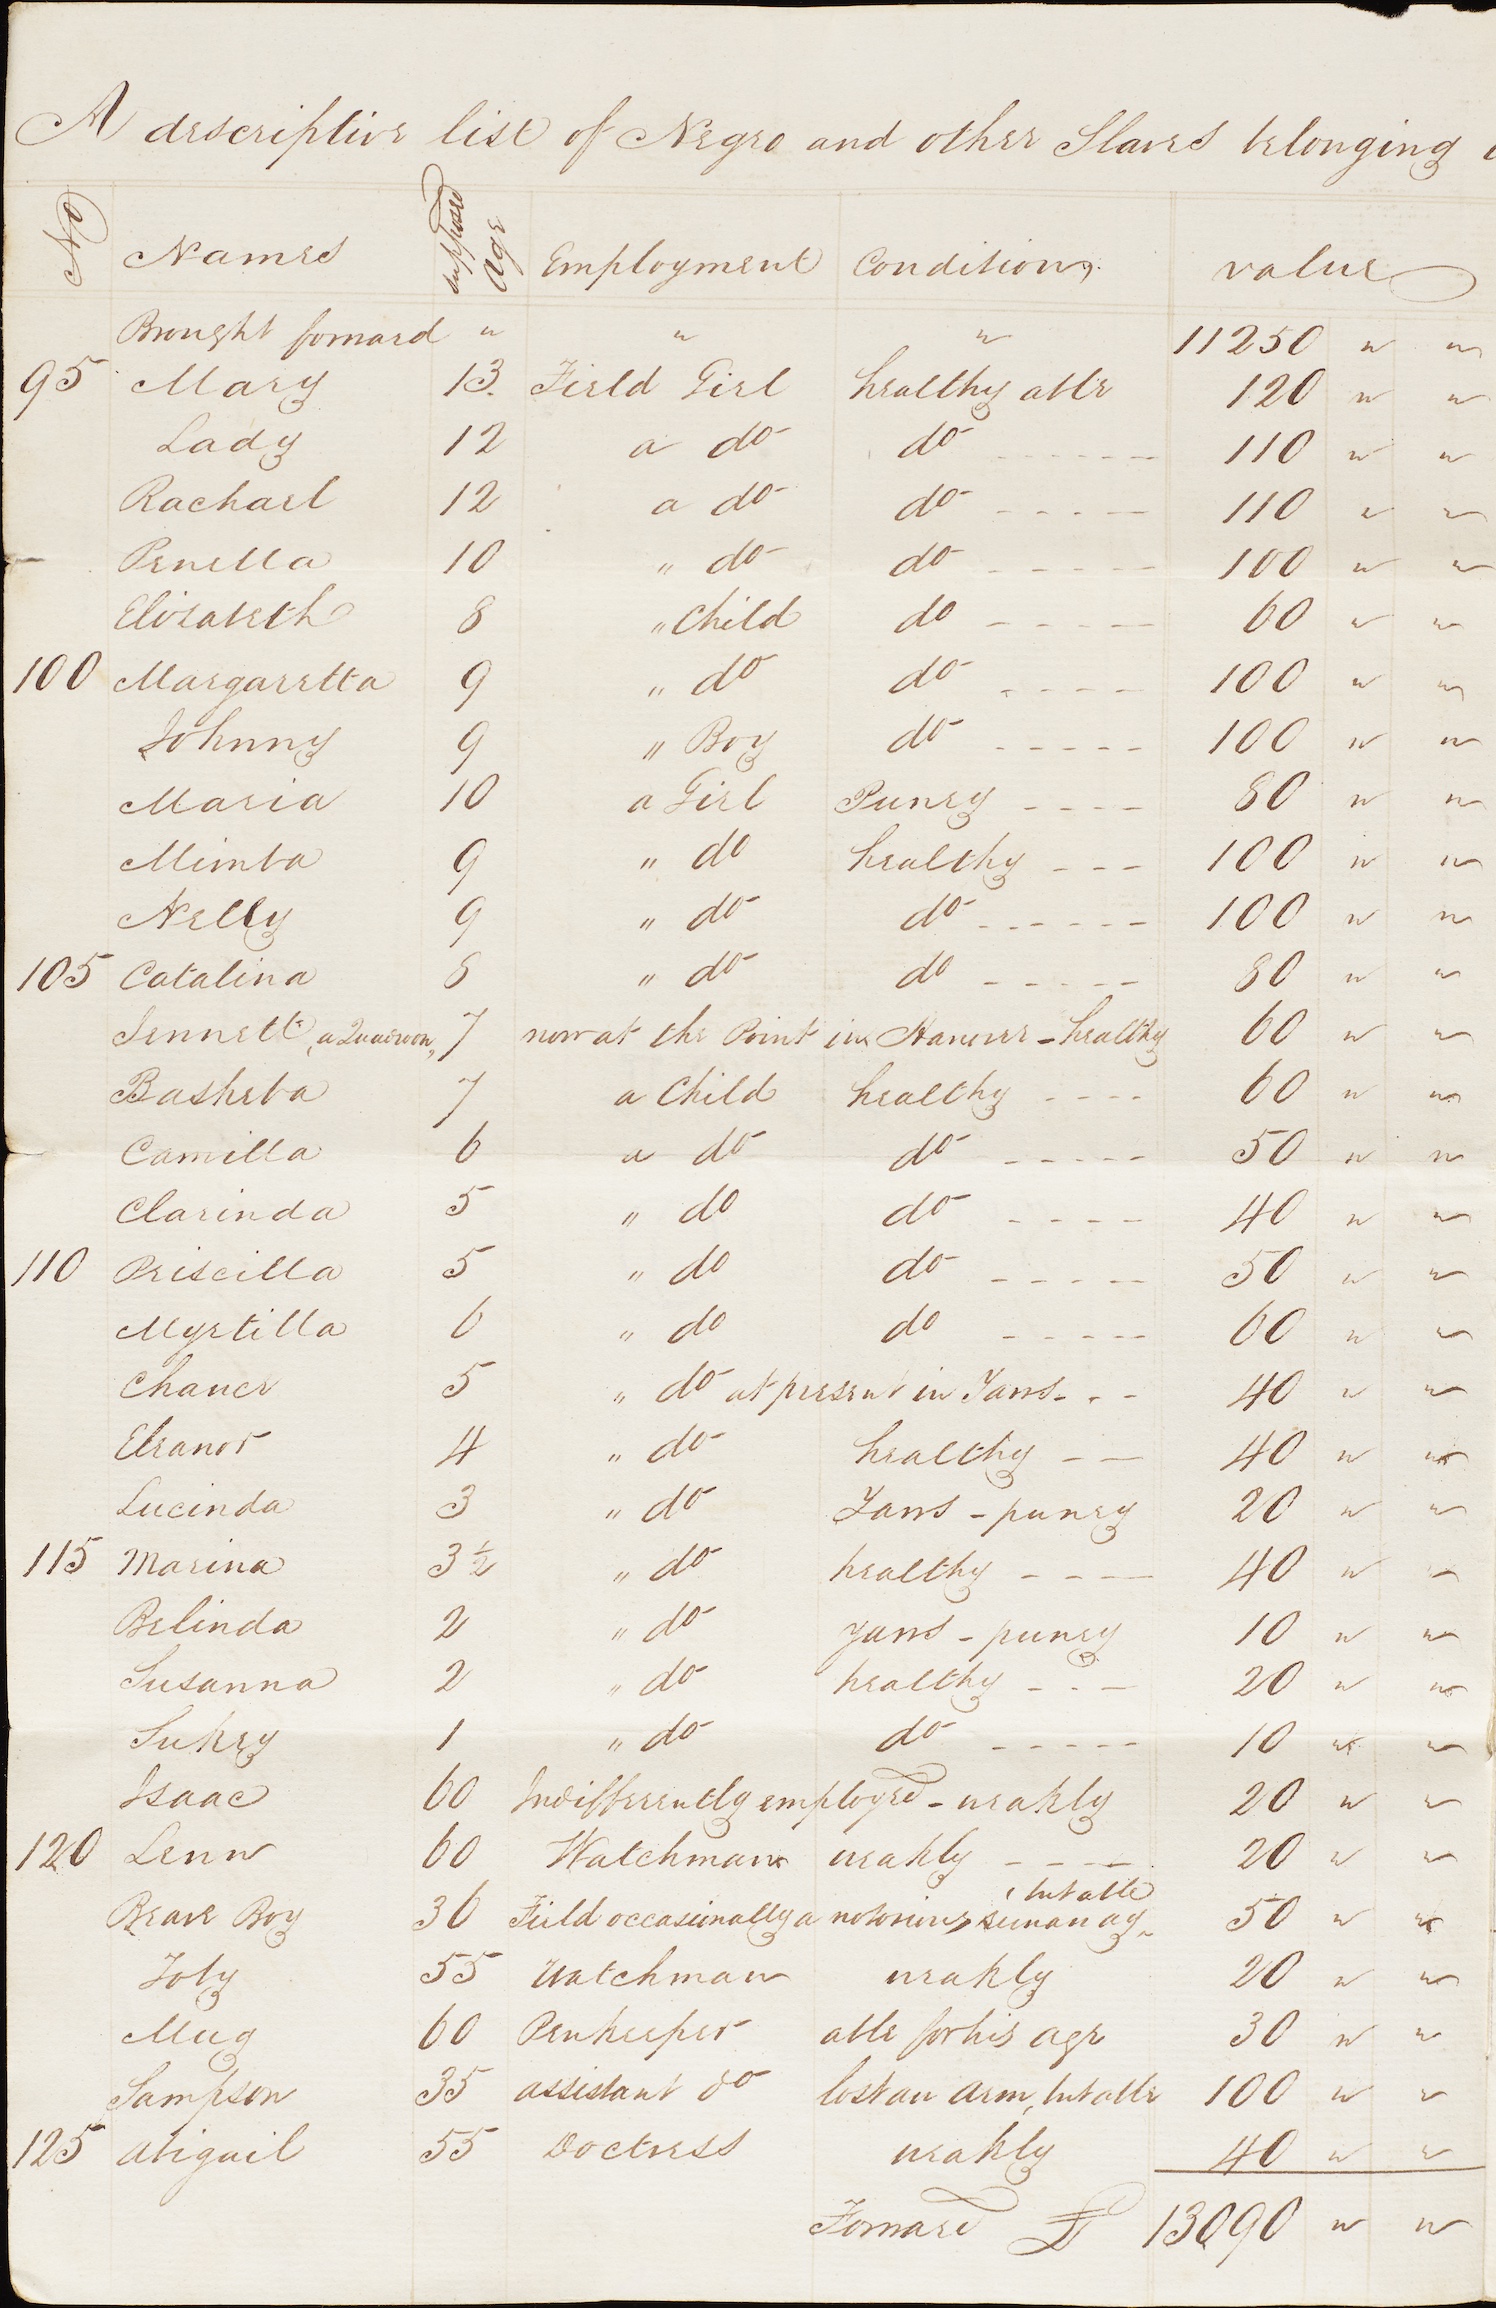 A descriptive list of Negro and other Slaves belonging
No Names supposed age Employment Condition value
Brought forward " " " 11250 " "
95 Mary 13. Field Girl healthy able 120 " "
Lady 12 a do do 110 " "
Rachael 12 a do do 110 " "
Penella 10 " do do 100 " "
Elizabeth 8 " Child do 60 " "
100 Margaretta 9 " do do 100 " "
Johnny 9 " Boy do 100 " "
Maria 10 a Girl Puney 80 " "
Mimba 9 " do healthy 100 " "
Nelly 9 " do do 100 " "
105 Catalina 8 " do do 80 " "
Jennett, a Quadroon, 7 now at the Point in Hanover - healthy 60 " "
Basheba 7 a Child healthy 60 " "
Camilla 6 a do do 50 " "
Clarinda 5 " do do 40 " "
110 Priscilla 5 " do do 50 " "
Myrtilla 6 " do do 60 " "
Chance 5 " do at present in Yaws 40 " "
Eleanor 4 " do healthy 40 " "
Lucinda 3 " do Yaws - puney 20 " "
115 Marina 3½ " do healthy 40 " "
Belinda 2 " do yaws - puney 10 " "
Susanna 2 " do healthy 20 " "
Sukey 1 " do do 10 " "
Isaac 60 Indifferently employed - weakly 20 " "
120 Lenw 60 Watchman weakly 20 " "
Brave Boy 36 Field occasionally a notorious runaway, but able 50 " "
Toby 55 Watchman weakly 20 " "
Mug 60 Penkeeper able for his age 30 " "
Sampson 35 assistant do lost an arm, but able 100 " "
125 Abigail 55 Doctress weakly 40 " "
Forward £ 13090 " "